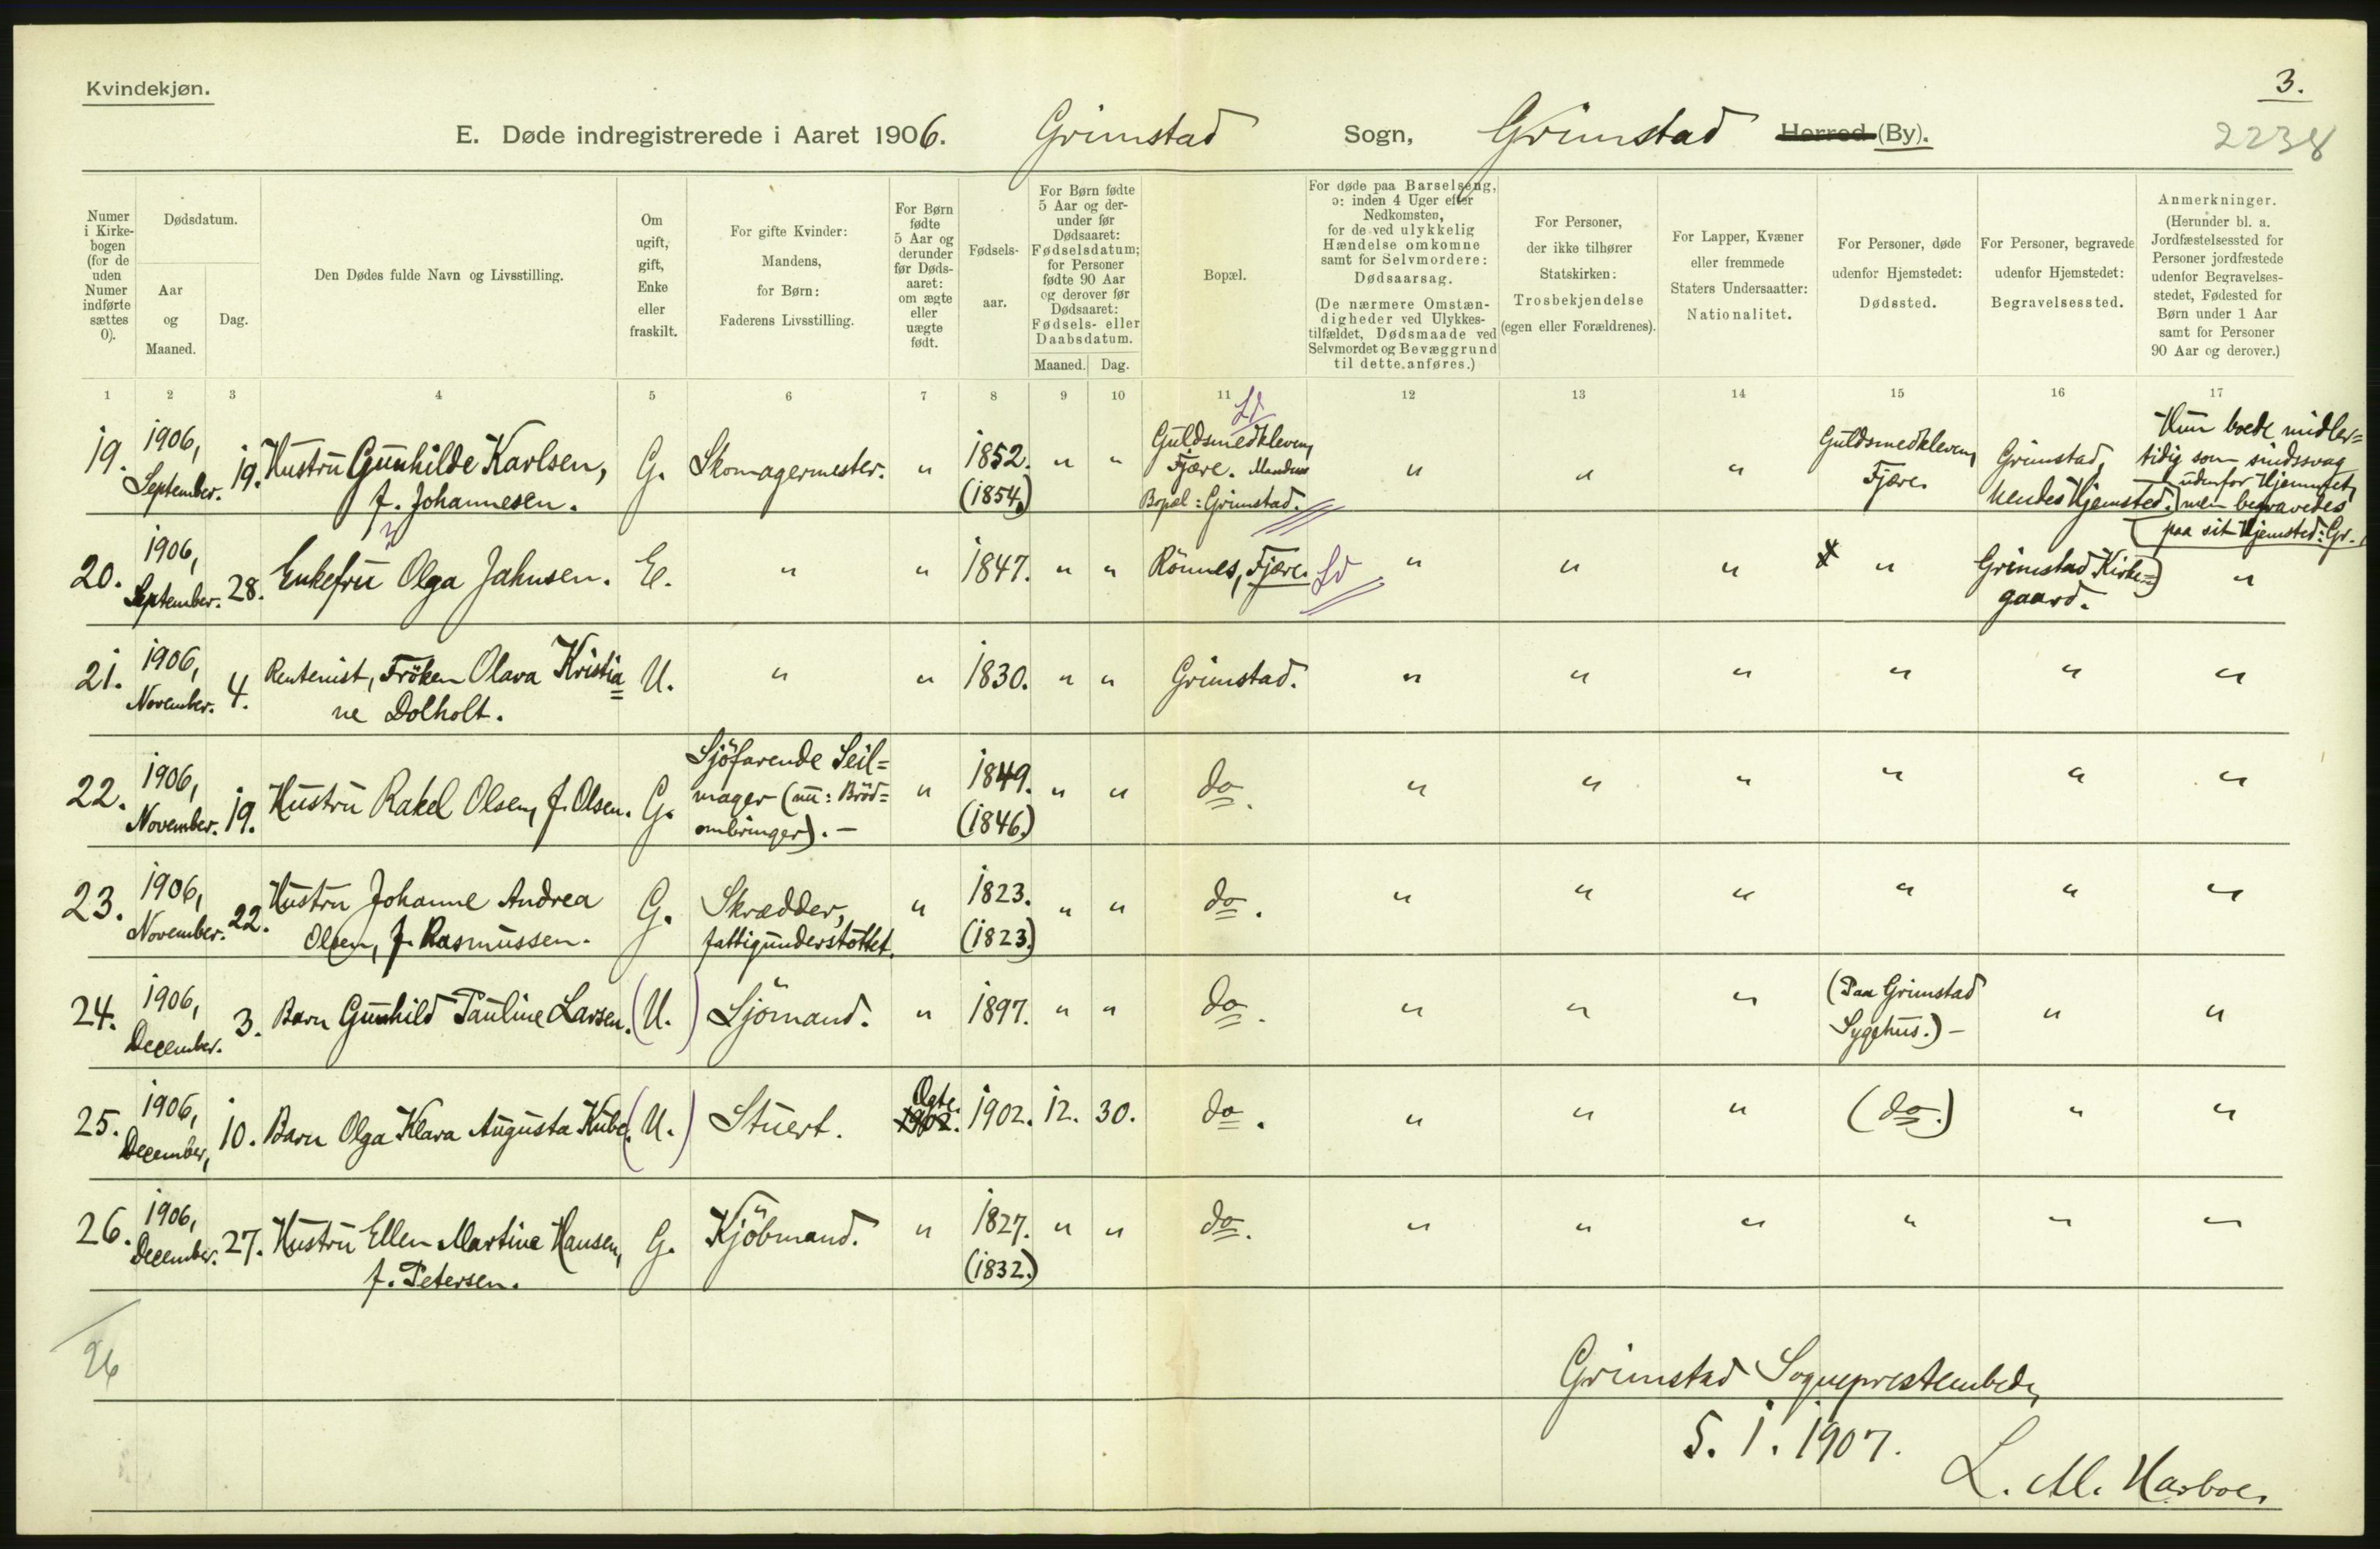 Kvindekjøn.
3.
E. Døde indregistrerede i Aaret 1906. Grimstad Sogn, Grimstad Herred (By).
2238
Numer i Kirkebogen (for de uden Numer indførte sættes 0).
Dødsdatum.
Aar og Maaned.
Dag.
Den Dødes fulde Navn og Livsstilling.
Om ugift, gift, Enke eller fraskilt.
For gifte Kvinder: Mandens, for Børn: Faderens Livsstilling.
For Børn fødte 5 Aar og derunder før Dødsaaret: om ægte eller uægte født.
Fødselsaar.
For Børn fødte 5 Aar og derunder før Dødsaaret: Fødselsdatum; for Personer fødte 90 Aar og derover før Dødsaaret: Fødsels- eller Daabsdatum.
Maaned. Dag.
Bopæl.
For døde paa Barselseng, ɔ: inden 4 Uger efter Nedkomsten, for de ved ulykkelig Hændelse omkomne samt for Selvmordere: Dødsaarsag.
(De nærmere Omstændigheder ved Ulykkestilfældet, Dødsmaade ved Selvmordet og Bevæggrund til dette anføres.)
For Personer, der ikke tilhører Statskirken: Trosbekjendelse (egen eller Forældrenes).
For Lapper, Kvæner eller fremmede Staters Undersaatter: Nationalitet.
For Personer, døde udenfor Hjemstedet: Dødssted.
For Personer, begravede udenfor Hjemstedet: Begravelsessted.
Anmerkninger.
(Herunder bl. a. Jordfæstelsessted for Personer jordfæstede udenfor Begravelsesstedet, Fødested for Børn under 1 Aar samt for Personer 90 Aar og derover.)
1 2 3 4 5 6 7 8 9 10 11 12 13 14 15 16 17
19. 1906, September. 19. Hustru Gunhilde Karlsen, f. Johannesen. G. Skomagermester. " 1852. (1854.) " " Guldsmedkleven, Fjære. Mandens Bopæl: Grimstad. " " " Guldsmedkleven, Fjære. Grimstad, hendes Hjemsted. Hun boede midlertidig som sindssvag udenfor Hjemmet, men begravedes paa sit Hjemsted: Gr.
20. 1906, September. 28. Enkefru Olga Jahnsen. E. " " 1847. " " Rönnes, Fjære. " " " " Grimstad Kirkegaard. "
21. 1906, November. 4. Rentenist, Fröken Olava Kristiane Dolholt. U. " " 1830. " " Grimstad. " " " " " "
22. 1906, November. 19. Hustru Rakel Olsen, f. Olsen. G. Sjöfarende Seilmager (nu: Brödombringer). — " 1849. (1846.) " " do. " " " " " "
23. 1906, November. 22. Hustru Johanne Andrea Olsen, f. Rasmussen. G. Skrædder, fattigunderstöttet. " 1823. (1823.) " " do. " " " " " "
24. 1906, December. 3. Barn Gunhild Pauline Larsen. (U.) Sjömand. " 1897. " " do. " " " (Paa Grimstad Sygehus.) — " "
25. 1906, December, 10. Barn Olga Klara Augusta Kube. (U.) Stuert. Ægte. 1902. 1902. 12. 30. do. " " " (do.) " "
26. 1906, December. 27. Hustru Ellen Martine Hansen, f. Petersen. G. Kjöbmand. " 1827. (1832.) " " do. " " " " " "
26
Grimstad Sogneprestembede,
5. 1. 1907.
L. M. Harboe.